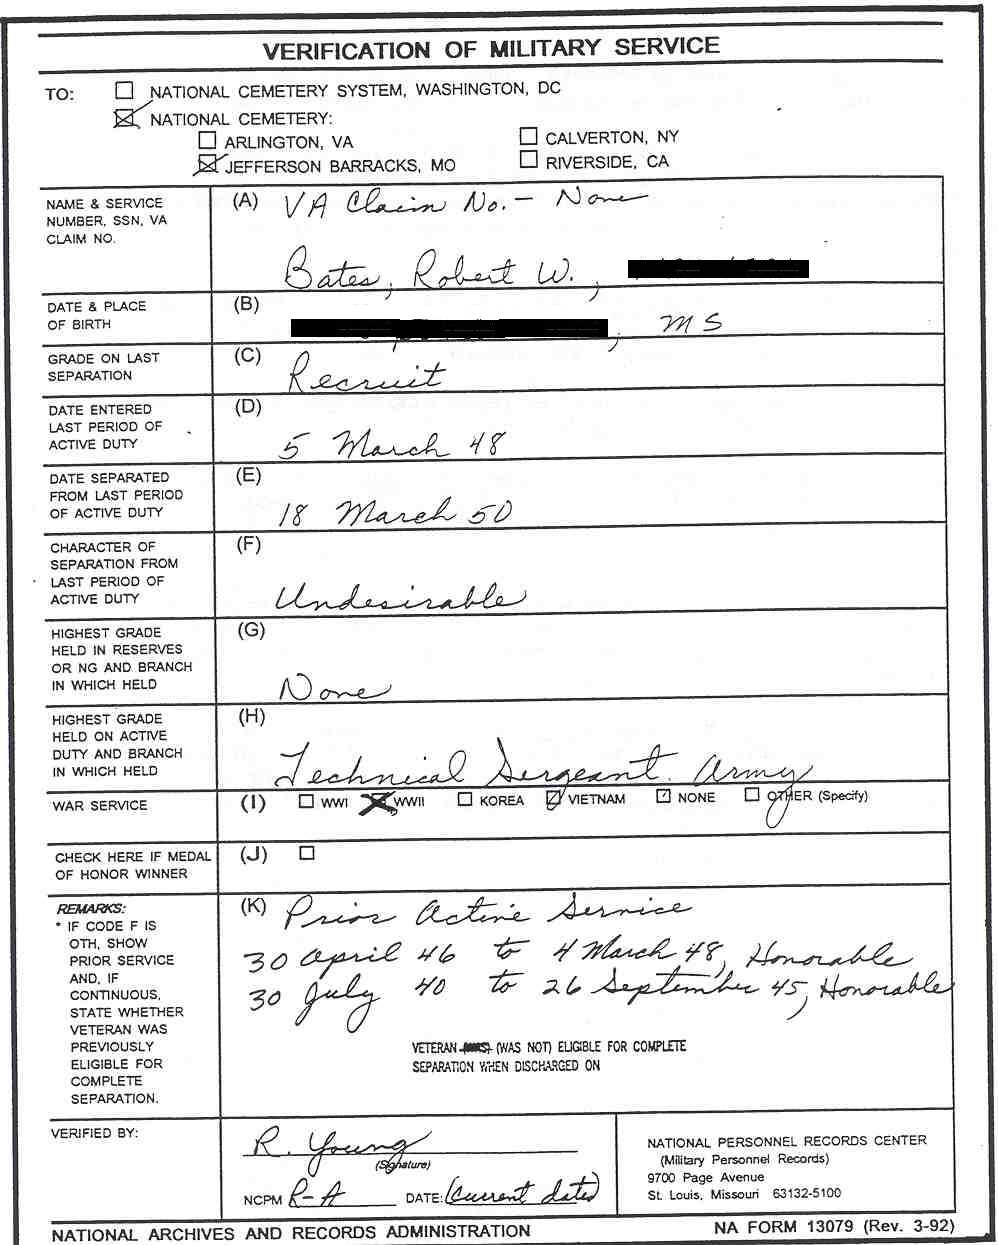 VERIFICATION OF MILITARY SERVICE
TO: NATIONAL CEMETERY SYSTEM, WASHINGTON, DC
NATIONAL CEMETERY:
ARLINGTON, VA CALVERTON, NY
JEFFERSON BARRACKS, MO RIVERSIDE, CA
NAME & SERVICE
NUMBER, SSN, VA
CLAIM NO.
(A) VA Claim No. - None
Bates, Robert W.,
DATE & PLACE
OF BIRTH
(B)
, MS
GRADE ON LAST
SEPARATION
(C)
Recruit
DATE ENTERED
LAST PERIOD OF
ACTIVE DUTY
(D)
5 March 48
DATE SEPARATED
FROM LAST PERIOD
OF ACTIVE DUTY
(E)
18 March 50
CHARACTER OF
SEPARATION FROM
LAST PERIOD OF
ACTIVE DUTY
(F)
Undesirable
HIGHEST GRADE
HELD IN RESERVES
OR NG AND BRANCH
IN WHICH HELD
(G)
None
HIGHEST GRADE
HELD ON ACTIVE
DUTY AND BRANCH
IN WHICH HELD
(H)
Technical Sergeant. Army
WAR SERVICE
(I) WWI WWII KOREA VIETNAM NONE OTHER (Specify)
CHECK HERE IF MEDAL
OF HONOR WINNER
(J)
REMARKS:
* IF CODE F IS
OTH, SHOW
PRIOR SERVICE
AND, IF
CONTINUOUS,
STATE WHETHER
VETERAN WAS
PREVIOUSLY
ELIGIBLE FOR
COMPLETE
SEPARATION.
(K) Prior Active Service
30 April 46 to 4 March 48, Honorable
30 July 40 to 26 September 45, Honorable
VETERAN (WAS NOT) ELIGIBLE FOR COMPLETE
SEPARATION WHEN DISCHARGED ON
VERIFIED BY:
R. Young
(Signature)
NCPM R-A DATE: (current date)
NATIONAL PERSONNEL RECORDS CENTER
(Military Personnel Records)
9700 Page Avenue
St. Louis, Missouri 63132-5100
NATIONAL ARCHIVES AND RECORDS ADMINISTRATION NA FORM 13079 (Rev. 3-92)